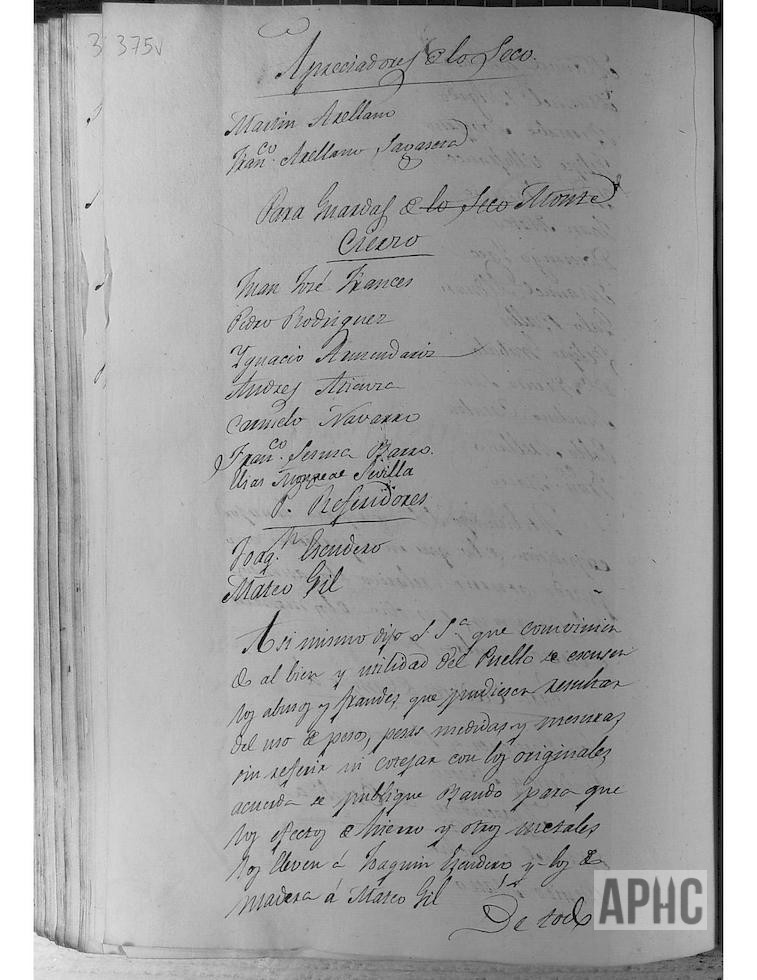 375v
Apreciadores de lo Seco.
Martin Arellano
Fran.co Arellano Savasera
Para Guardas de lo Seco Monte
Cierzo
Juan José Frances
Pedro Rodriguez
Ygnacio Armendariz
Andres Atienza
Carmelo Navarro
Fran.co Sesma Barro.
Elias Monreal Sevilla
P. Referidores
Joaq.n Escudero
Mateo Gil
Asi mismo dijo S. S.a que convinien
do al bien y utilidad del Pueblo se escusen
los abusos y fraudes que pudiesen resultar
del uso de pesos, pesas medidas y mesuras
sin referir ni cotejar con los originales
acuerda se publique Bando para que
los efectos de hierro y otros metales
los lleven á Joaquin Escudero y los de
madera á Mateo Gil
De todo
APHC